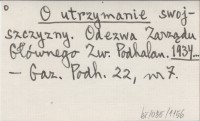 O utrzymanie swoj-
szczyzny. Odezwa Zarządu
Głównego Zw. Podhalan. 1934...
— Gaz. Podh. 22, nr 7.